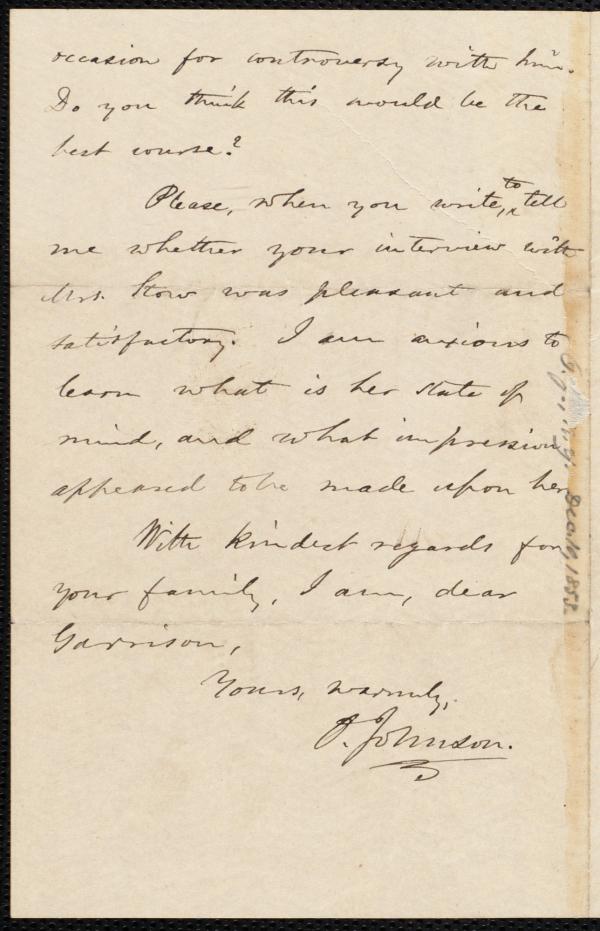 occasion for controversy with him.
Do you think this would be the
best course?
Please, when you write, to tell
me whether your interview with
Mrs. Stow was pleasant and
satisfactory. I am anxious to
learn what is her state of
mind, and what impression
appeared to be made upon her.
With kindest regards for
your family, I am, dear
Garrison,
Yours, warmly,
O. Johnson.
Dec. 10, 1853.